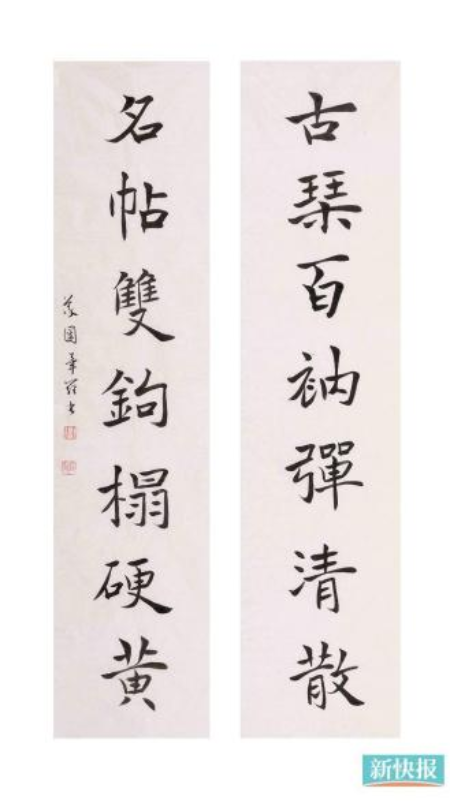 古琹百衲彈清散
名帖雙鉤榻硬黃
新快报